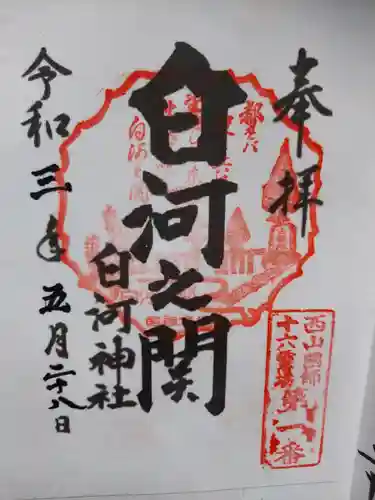 奉拝
白河之関
白河神社
令和三年五月二十八日
西山國師
十六霊場
第一番